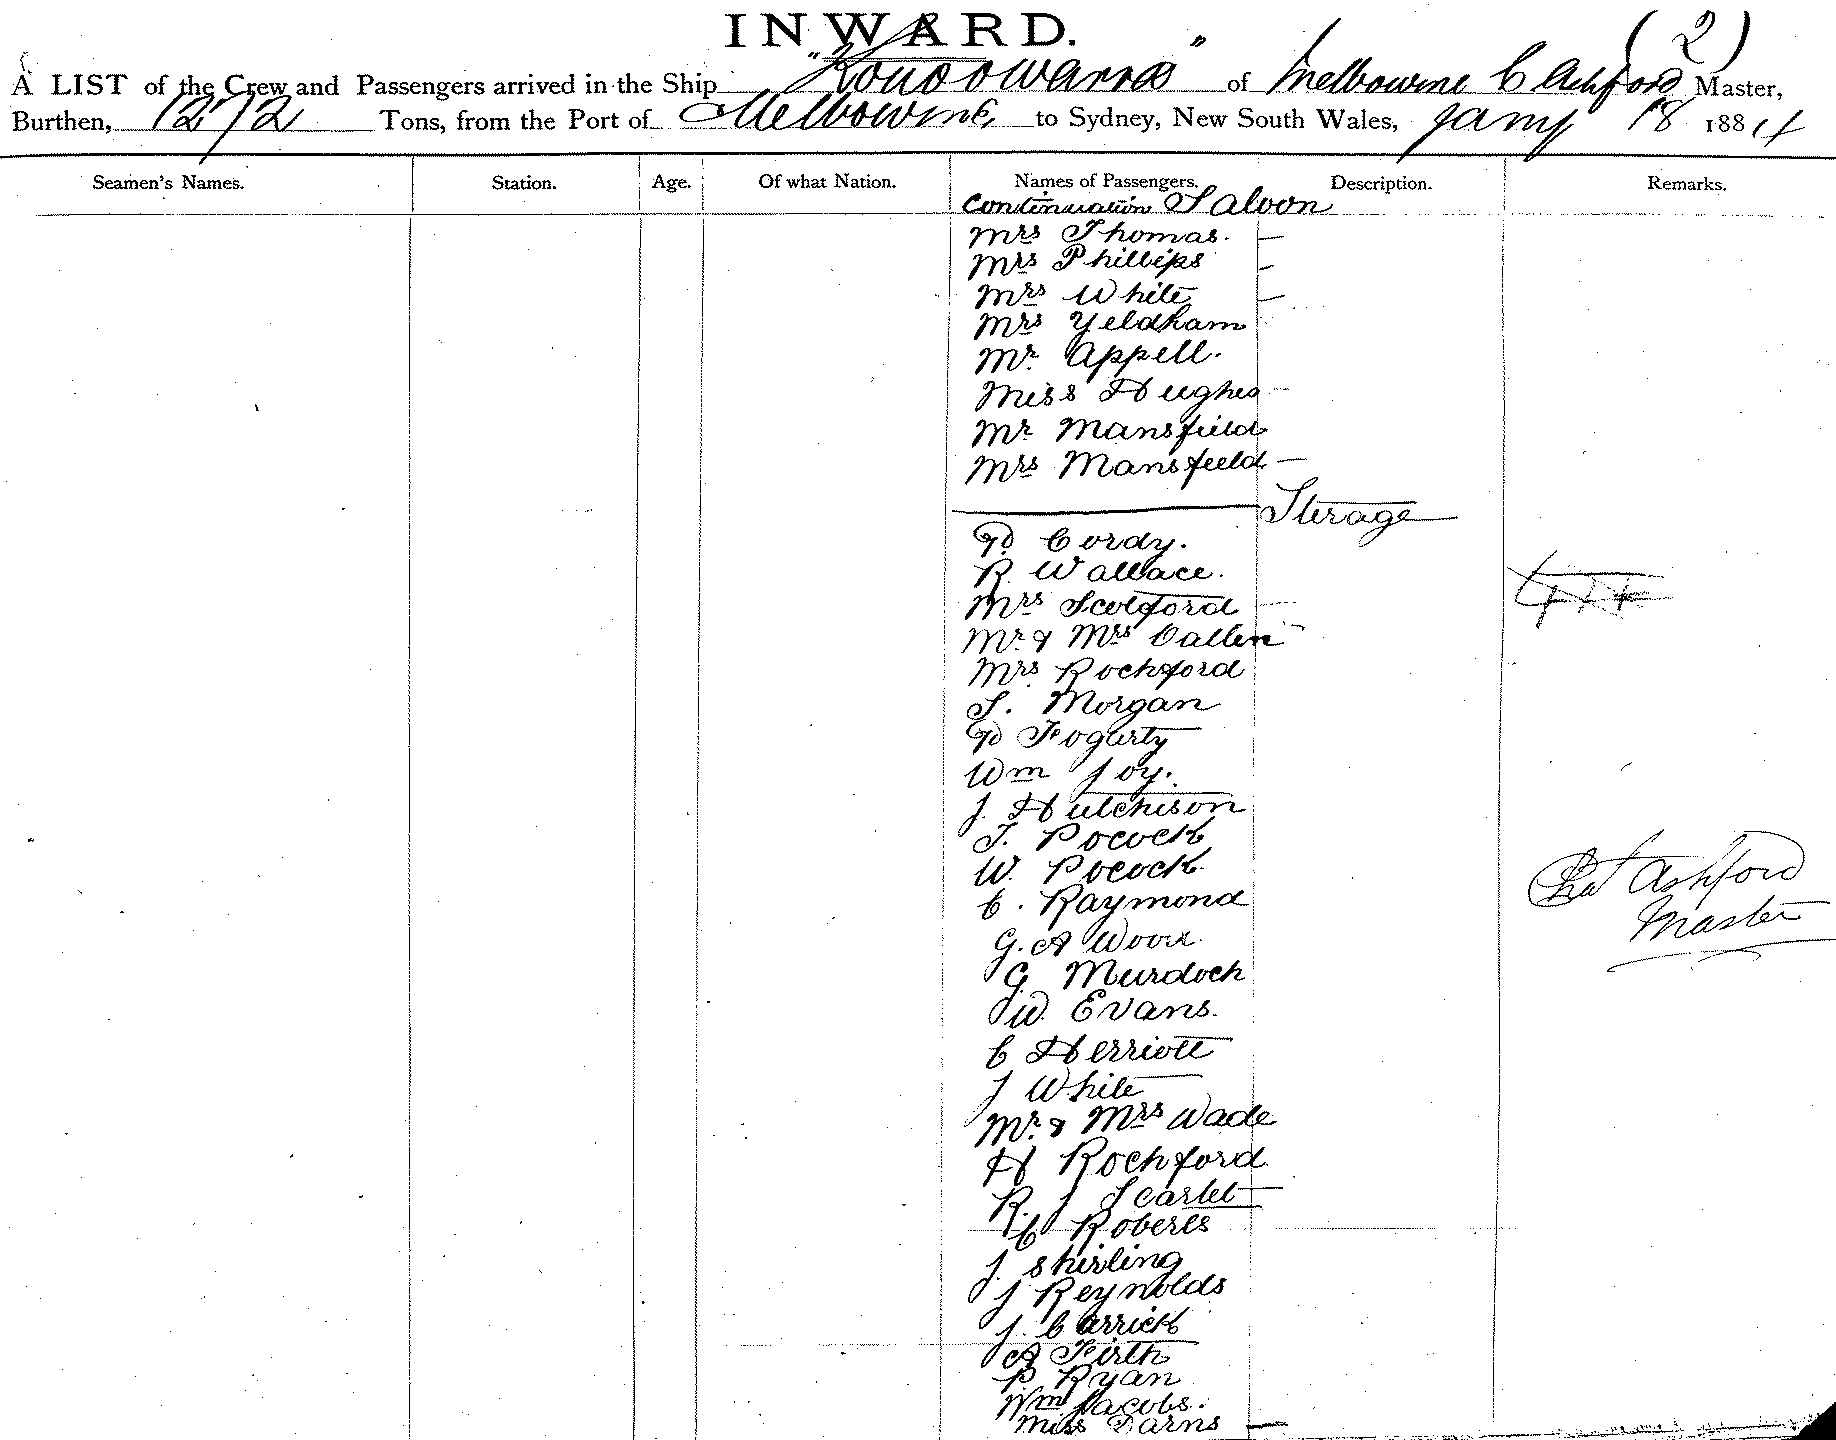 INWARD.
(2)
A LIST of the Crew and Passengers arrived in the Ship "Konoowarra" of Melbourne C Ashford Master,
Burthen, 1272 Tons, from the Port of Melbourne to Sydney, New South Wales, Jany 18 1884
Seamen's Names. Station. Age. Of what Nation. Names of Passengers. Description. Remarks.
Continuation Saloon
Mrs Thomas. —
Mrs Phillips —
Mrs White —
Mrs Yeldham
Mr. Appell.
Miss Hughes —
Mr Mansfield
Mrs Mansfield —
Sterage
P Cordy.
R. Wallace.
Mrs Scolford —
Mr. & Mrs Callen
Mrs Rochford
S. Morgan
P Fogarty
Wm Joy.
J. Hutchison
T. Pocock
W. Pocock.
C. Raymond
G. A Wood.
G. Murdoch
W. Evans.
C Herriott
J White
Mr. & Mrs Wade
H Rochford
R. J Scarlet
C Roberts
J. Shirling
J Reynolds
J. Carrick
A Firth
P. Ryan
Wm Jacobs.
Miss Darns —
Ashford
Master